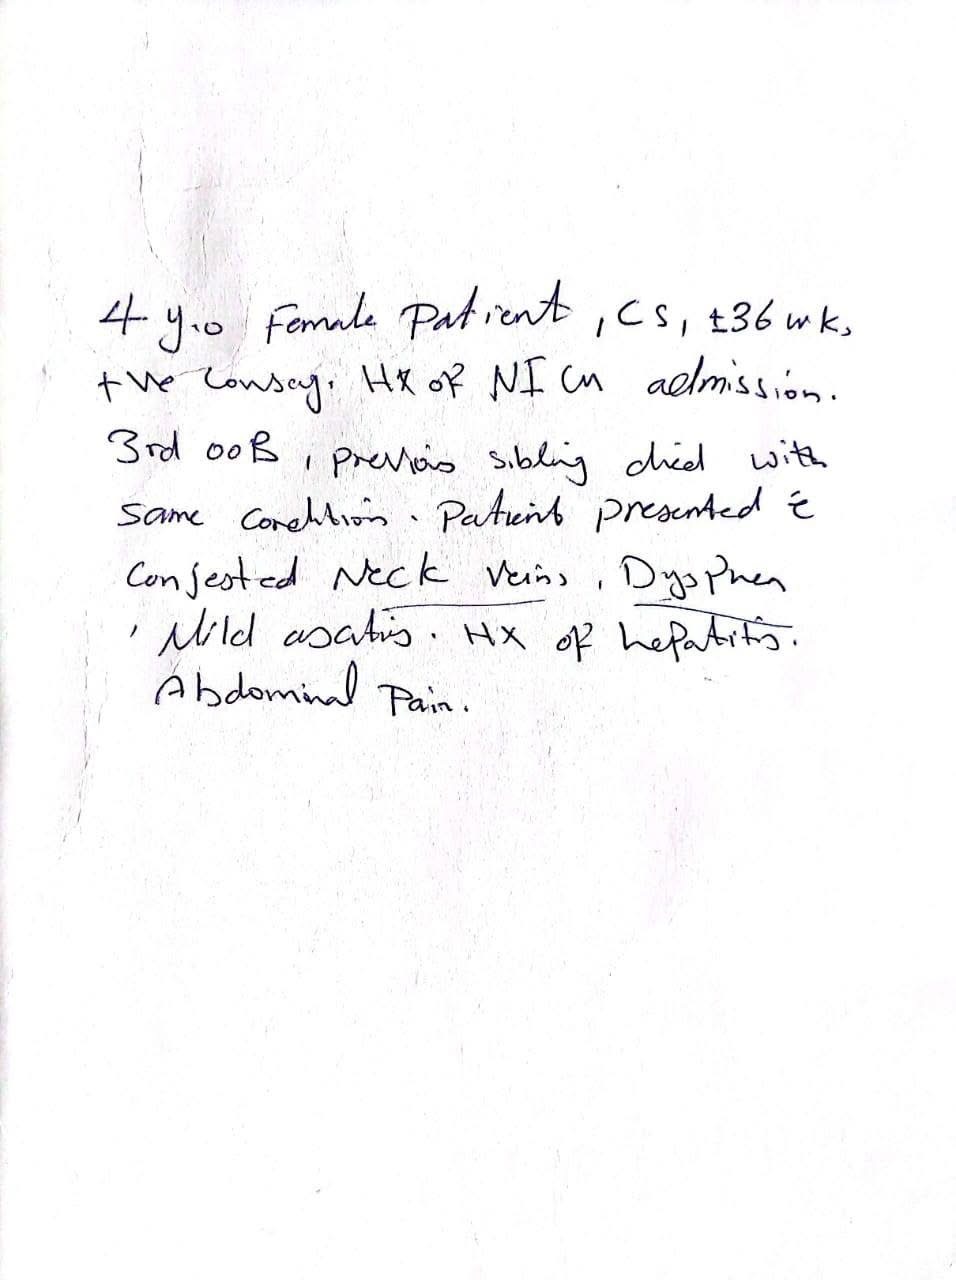 4 y.o Female Patient, CS, ±36 wk,
+ve Consag. Hx of NICU admission.
3rd OOB, previous sibling died with
same condition. Patient presented c̄
Conjested Neck Veins, Dysphea
, Mild ascatis. Hx of hepatitis.
Abdominal Pain.